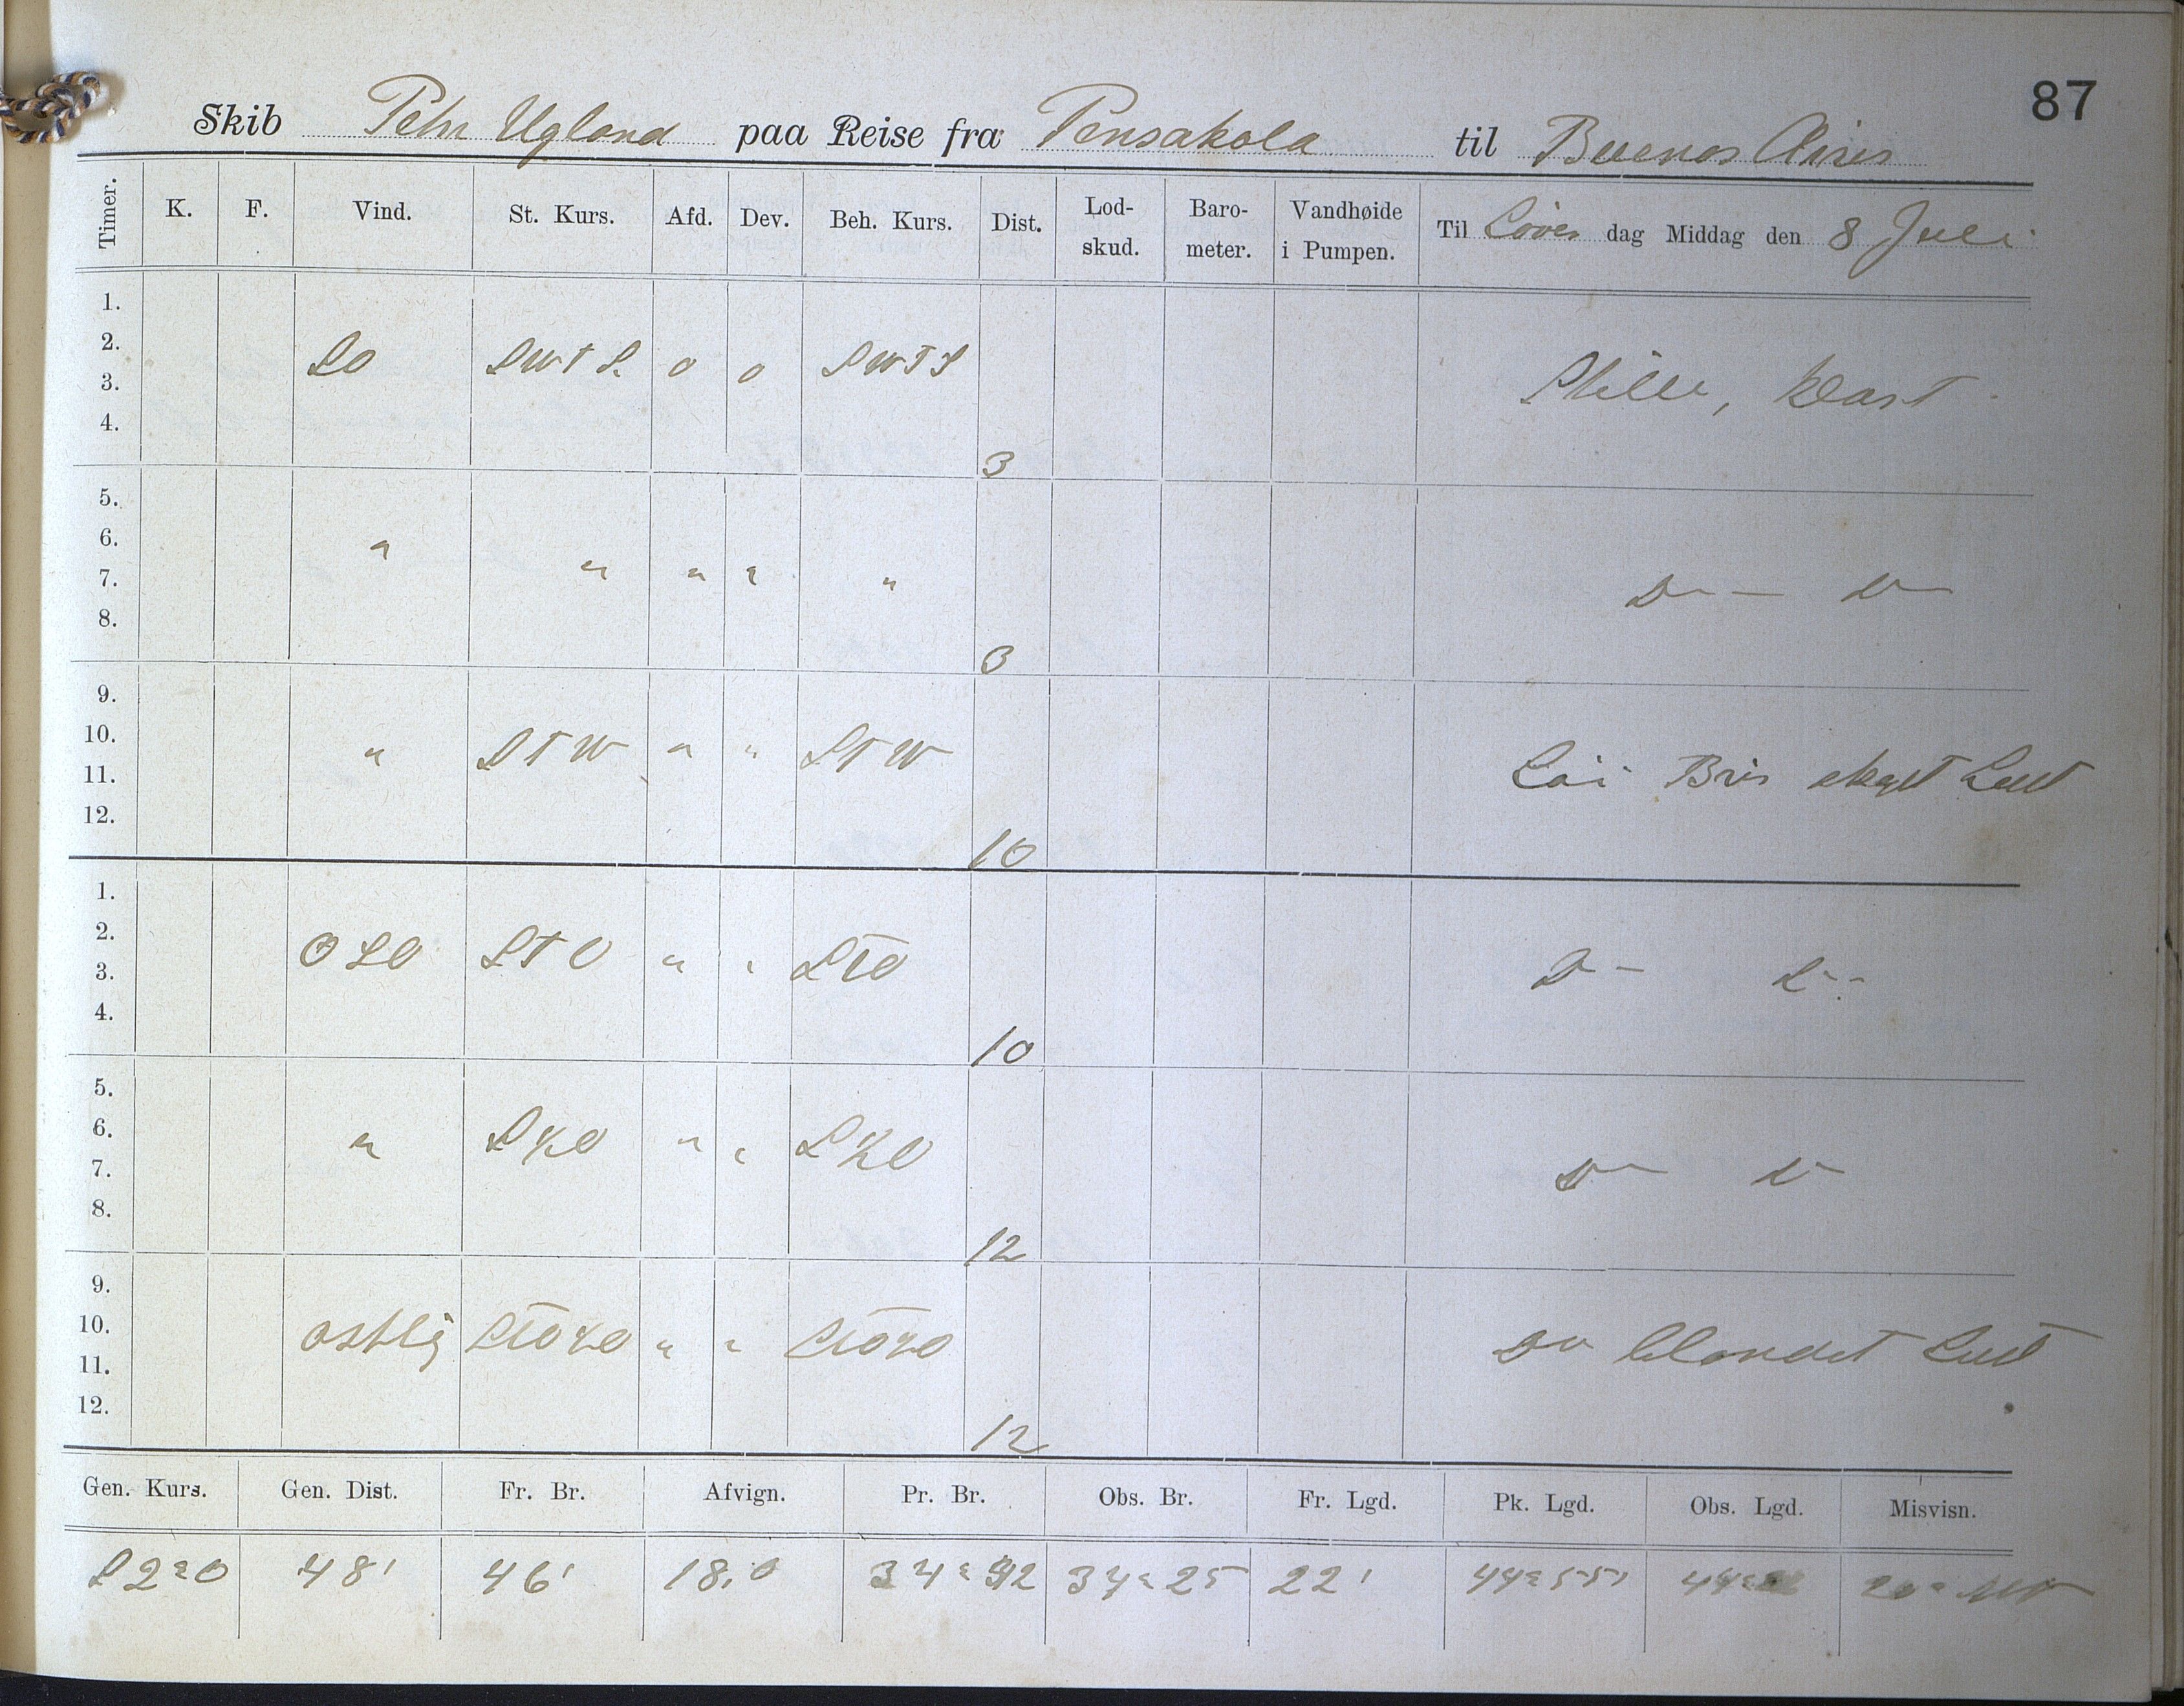 87
Skib Peter Ugland paa Reise fra Pensakola til Buenos Aires
Timer. K. F. Vind. St. Kurs. Afd. Dev. Beh. Kurs. Dist. Lod-skud. Baro-meter. Vandhøide i Pumpen. Til Löver dag Middag den 8 Juli
1.
2. SO SWTS o o SWTS Stille, klart
3.
4. 3
5.
6. " " " " " Do — Do
7.
8. 3
9.
10. " STW " " STW Löi Bris skyet Luft
11.
12. 10
1.
2. OSO STO " " STO Do — Do
3.
4. 10
5.
6. " S½O " " S½O Do Do
7.
8. 12
9.
10. ostlig STO½O " " STO½O Do blandet Luft
11.
12. 12
Gen. Kurs. Gen. Dist. Fr. Br. Afvign. Pr. Br. Obs. Br. Fr. Lgd. Pk. Lgd. Obs. Lgd. Misvisn.
S 22° O 48' 46' 18,0 34° 42 34° 25 22' 44° 55'